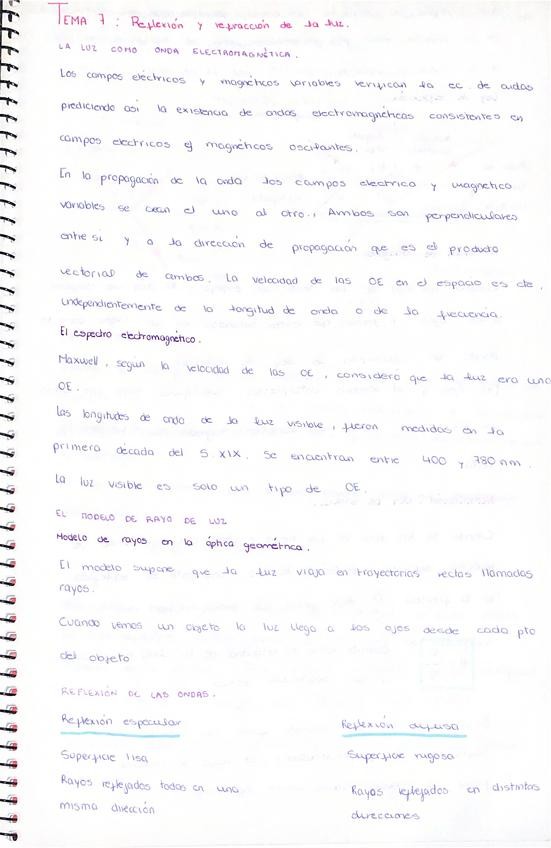 TEMA 7: Reflexión y refracción de la luz.
LA LUZ COMO ONDA ELECTROMAGNÉTICA.
Los campos eléctricos y magnéticos variables verifican la ec. de ondas
prediciendo así la existencia de ondas electromagnéticas consistentes en
campos electricos y magnéticos oscilantes.
En la propagación de la onda los campos electrico y magnetico
variables se crean el uno al otro., Ambos son perpendiculares
entre si y a la dirección de propagación que es el producto
vectorial de ambos. La velocidad de las OE en el espacio es cte,
independientemente de la longitud de onda o de la frecuencia.
El espectro electromagnético.
Maxwell, según la velocidad de las OE, considero que la luz era una
OE.
Las longitudes de onda de la luz visible, fueron medidas en la
primera década del S. XIX. Se encuentran entre 400 y 780 nm.
La luz visible es solo un tipo de OE.
EL MODELO DE RAYO DE LUZ
Modelo de rayos en la óptica geométrica.
El modelo supone que la luz viaja en trayectorias rectas llamadas
rayos.
Cuando vemos un objeto la luz llega a los ojos desde cada pto
del objeto
REFLEXIÓN DE LAS ONDAS.
Reflexión especular Reflexión difusa
Superficie lisa Superficie rugosa
Rayos reflejados todos en una Rayos reflejados en distintas
misma dirección direcciones